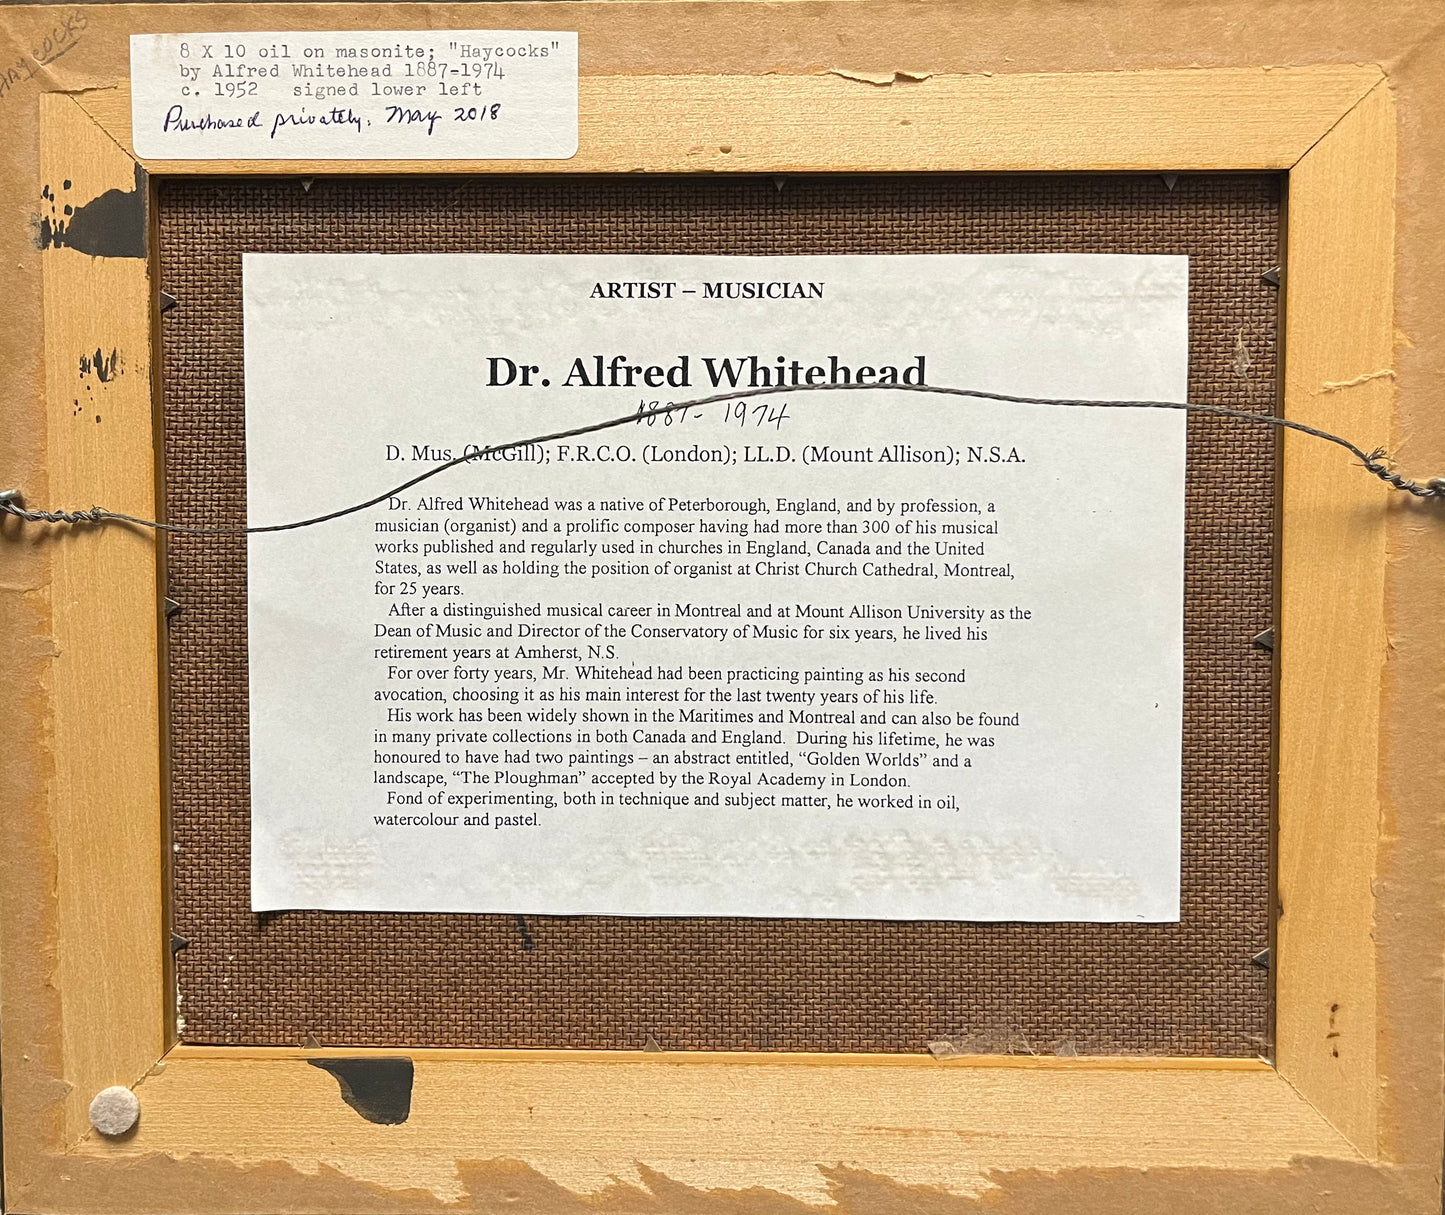 HAYCOCKS
8 X 10 oil on masonite; "Haycocks"
by Alfred Whitehead 1887-1974
c. 1952 signed lower left
Purchased privately, May 2018
ARTIST – MUSICIAN
Dr. Alfred Whitehead
1887- 1974
D. Mus. (McGill); F.R.C.O. (London); LL.D. (Mount Allison); N.S.A.
Dr. Alfred Whitehead was a native of Peterborough, England, and by profession, a
musician (organist) and a prolific composer having had more than 300 of his musical
works published and regularly used in churches in England, Canada and the United
States, as well as holding the position of organist at Christ Church Cathedral, Montreal,
for 25 years.
After a distinguished musical career in Montreal and at Mount Allison University as the
Dean of Music and Director of the Conservatory of Music for six years, he lived his
retirement years at Amherst, N.S.
For over forty years, Mr. Whitehead had been practicing painting as his second
avocation, choosing it as his main interest for the last twenty years of his life.
His work has been widely shown in the Maritimes and Montreal and can also be found
in many private collections in both Canada and England. During his lifetime, he was
honoured to have had two paintings – an abstract entitled, “Golden Worlds” and a
landscape, “The Ploughman” accepted by the Royal Academy in London.
Fond of experimenting, both in technique and subject matter, he worked in oil,
watercolour and pastel.